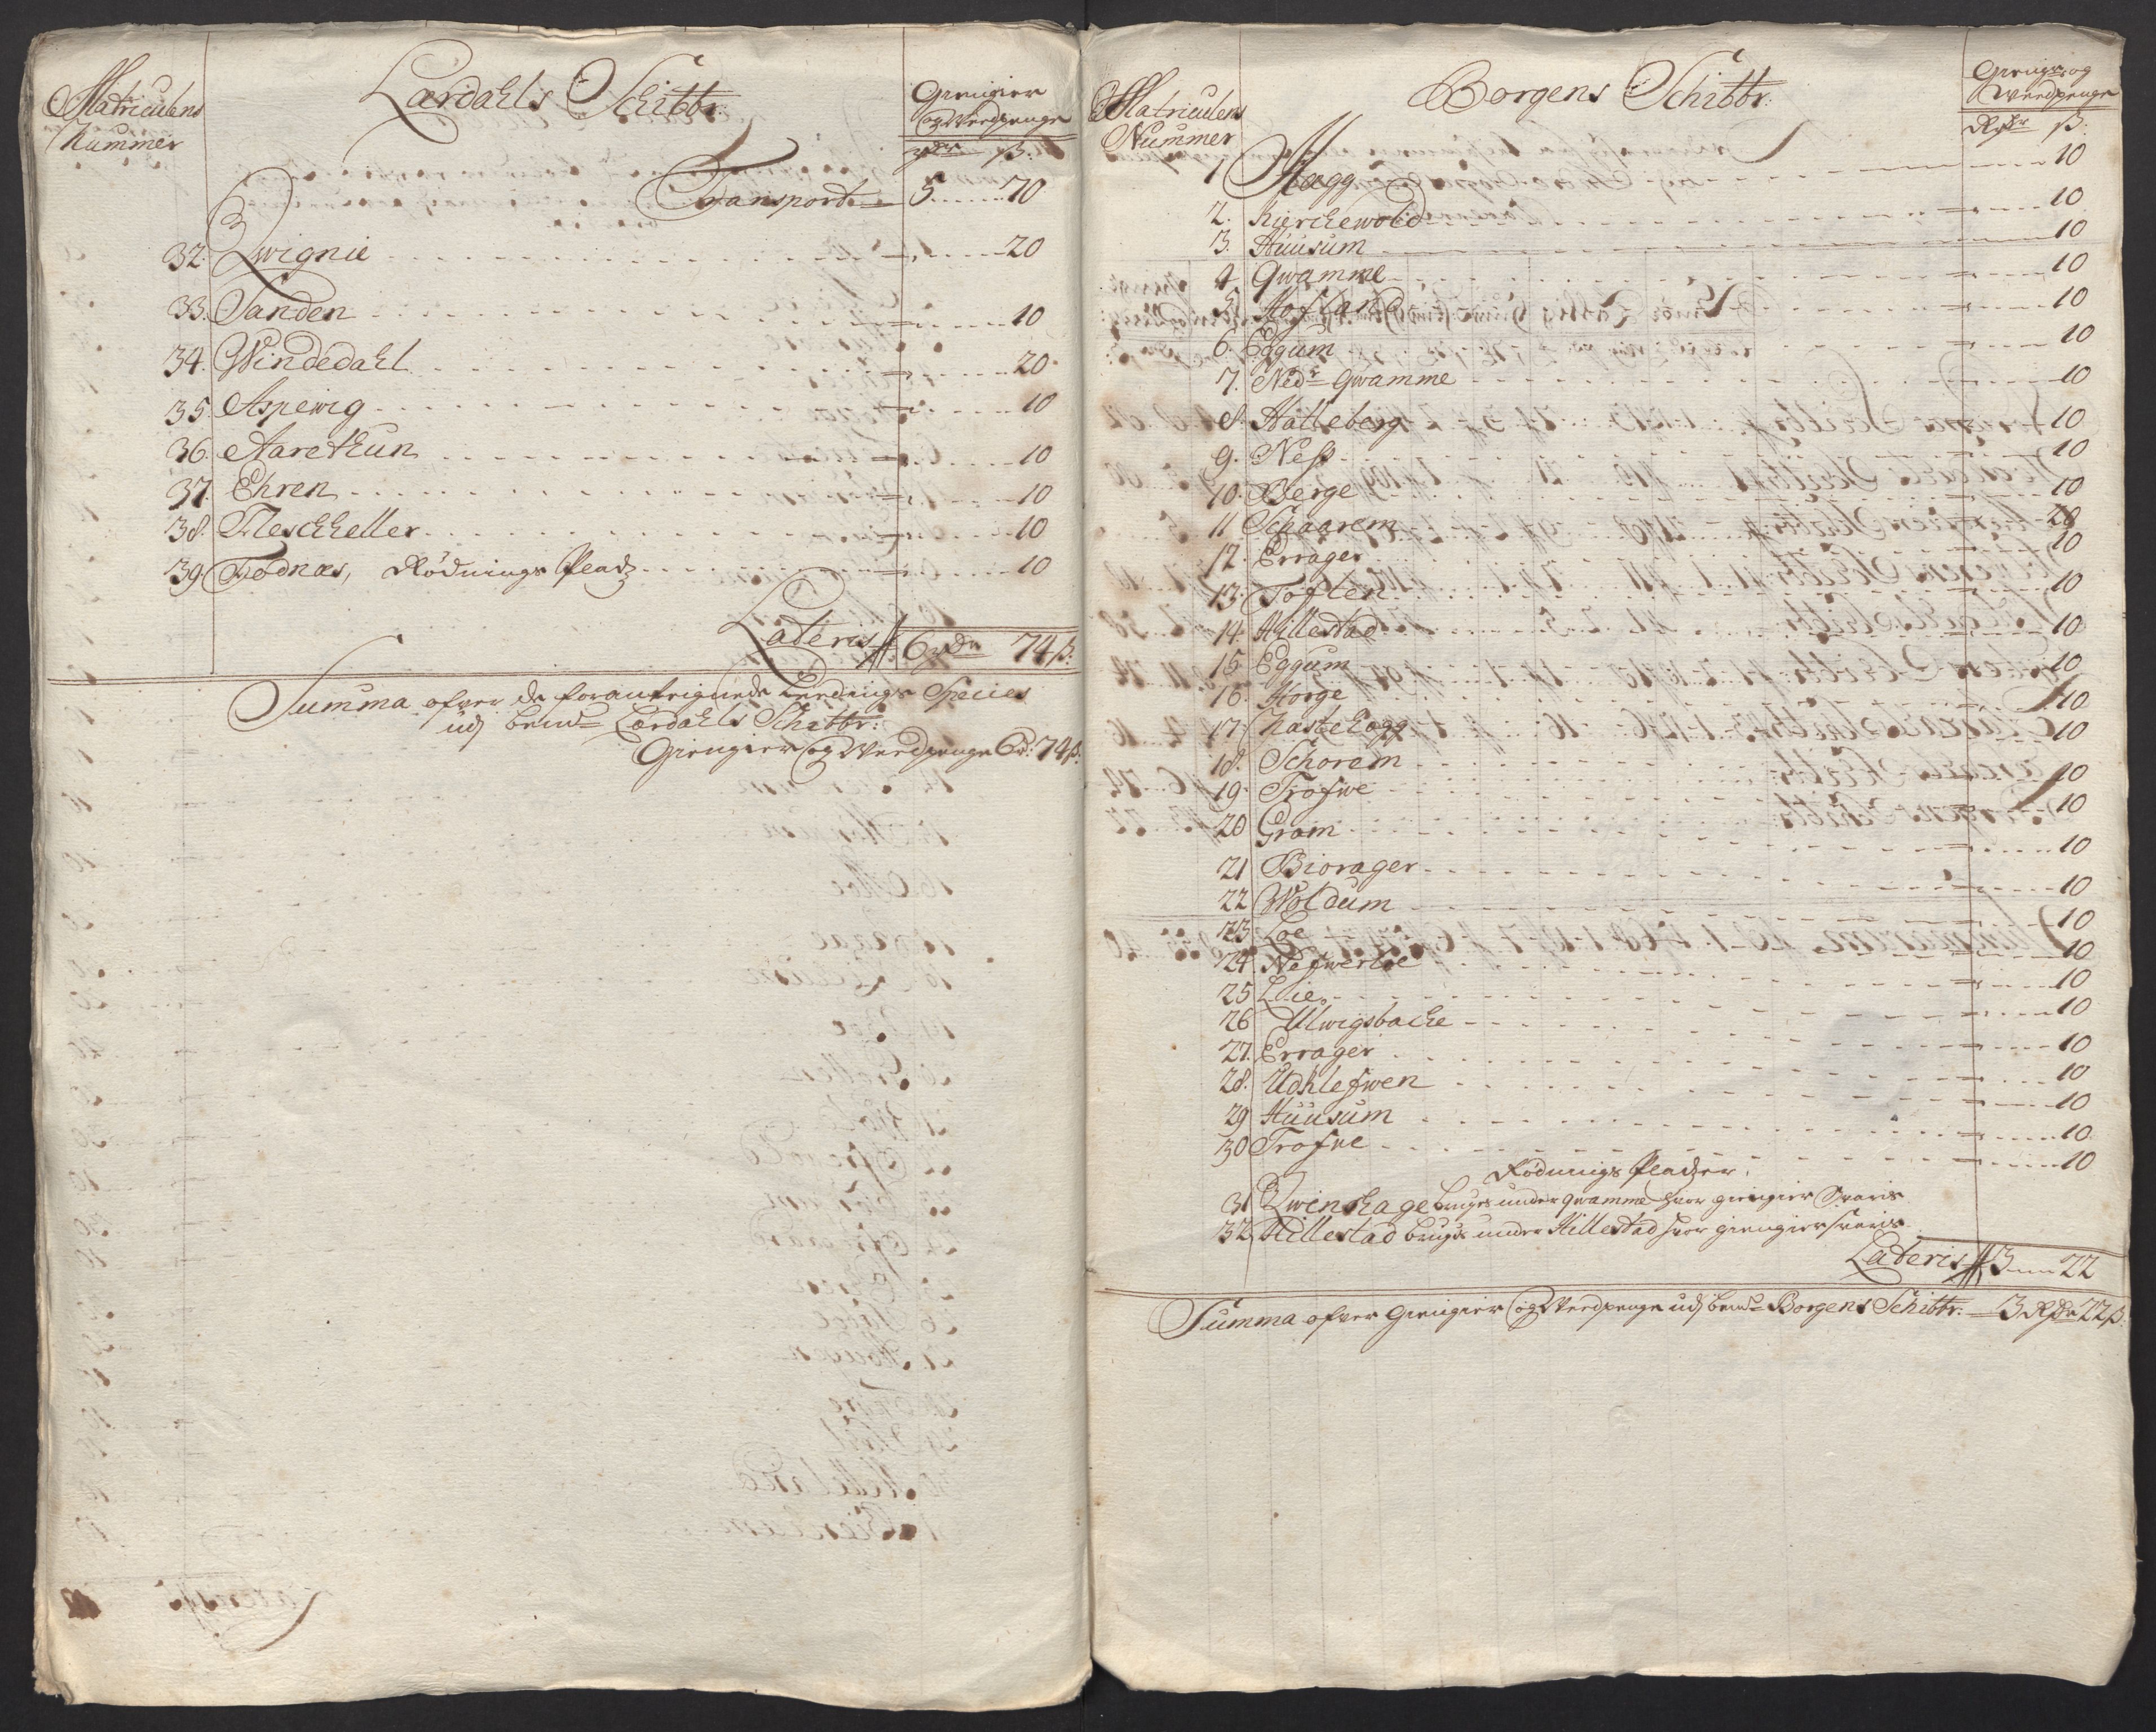 Matriculens
Nummer
Lærdahls Schibbr:
Giengier
og Werdpenge
rdr ß:
Transport 5 70
32. Qwignie 20
33. Sanden 10
34. Windedahl 20
35. Aspewig 10
36. Aarethun 10
37. Ehren 10
38. Fleschheller 10
39 Fodnæs, Rödnings Pladz 10
Lateris 6 rdr 74 ß:
Summa ofver de foranteignede Lædings Species
udj bemte Lærdahls Schibbr:
Giengier og Werdpenge 6 r: 74 ß:
Matriculens
Nummer
Borgens Schibbr:
Giengr: og
Werdpenge
Rdr ß:
1 Mægg 10
2. Kierchewold 10
3. Huusum 10
4 Qwamme 10
5. Hofland 10
6. Eggum 10
7. Nedr Qwamme 10
8. Halleberg 10
9. Neß 10
10. Berge 10
11 Schaarem 20
12. Errager 10
13. Toften 10
14. Hillestad 10
15. Eggum 10
16. Horge 10
17. Kastehogg 10
18. Schorem
19. Trofwe 10
20 Grom 10
21 Biorager 10
22 Woldum 10
23 Loe 10
24 Nefwerloe 10
25 Lie 10
26 Ulwigsbache 10
27. Errager 10
28. Udhlefwen 10
29 Huusum 10
30 Trofve 10
10
Rödnings Pladzer.
31 Qwenshage bruges under Qwamme hvor giengier Svaris
32. Hillestad brugis under Hillestad hvor giengier svaris
Lateris 3 22
Summa ofver Giengier og Werdpenge udj bemte Borgens Schibbr: 3 Rdr 22 ß: